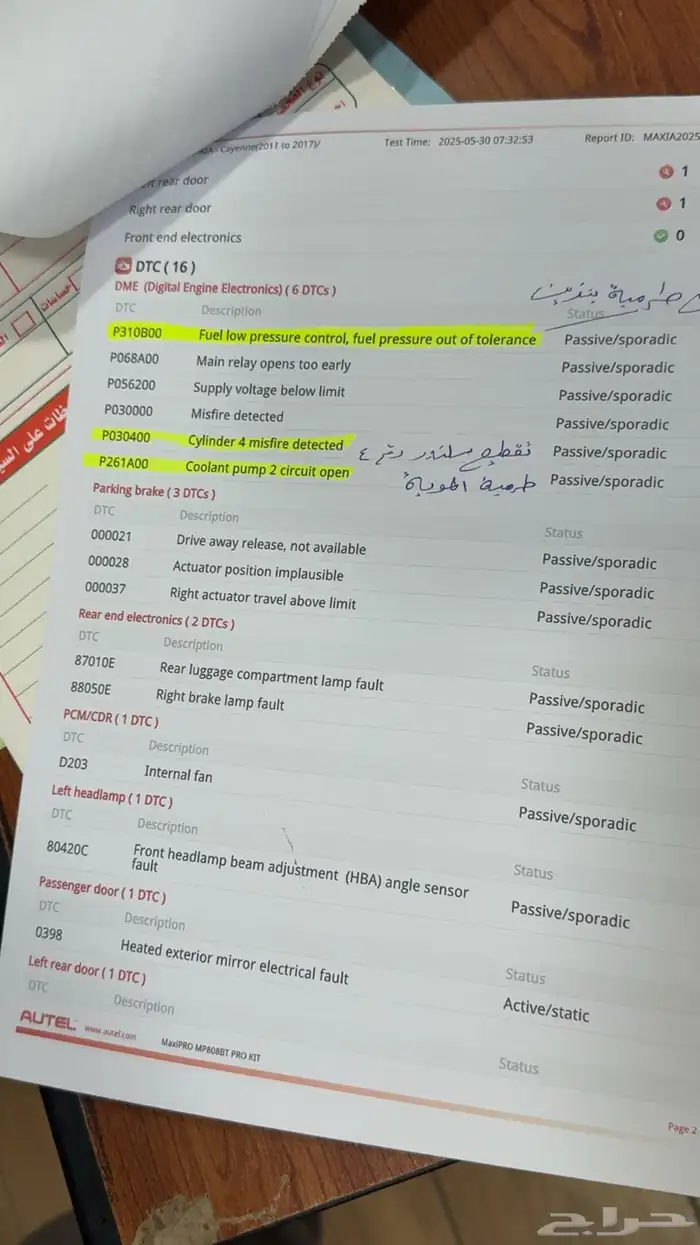 نوع الفحص
Cayenne(2011 to 2017)/ Test Time: 2025-05-30 07:32:53 Report ID: MAXIA2025
rear door 1
Right rear door 1
Front end electronics 0
DTC ( 16 )
DME (Digital Engine Electronics) ( 6 DTCs )
طرمبة بنزين
DTC Description Status
P310B00 Fuel low pressure control, fuel pressure out of tolerance Passive/sporadic
P068A00 Main relay opens too early Passive/sporadic
P056200 Supply voltage below limit Passive/sporadic
P030000 Misfire detected Passive/sporadic
P030400 Cylinder 4 misfire detected تقطيع سلندر رقم ٤ Passive/sporadic
P261A00 Coolant pump 2 circuit open طرمبة الموية Passive/sporadic
Parking brake ( 3 DTCs )
DTC Description Status
000021 Drive away release, not available Passive/sporadic
000028 Actuator position implausible Passive/sporadic
000037 Right actuator travel above limit Passive/sporadic
Rear end electronics ( 2 DTCs )
DTC Description Status
87010E Rear luggage compartment lamp fault Passive/sporadic
88050E Right brake lamp fault Passive/sporadic
PCM/CDR ( 1 DTC )
DTC Description Status
D203 Internal fan Passive/sporadic
Left headlamp ( 1 DTC )
DTC Description Status
80420C Front headlamp beam adjustment (HBA) angle sensor Passive/sporadic
fault
Passenger door ( 1 DTC )
DTC Description Status
0398 Heated exterior mirror electrical fault Active/static
Left rear door ( 1 DTC )
DTC Description Status
AUTEL www.autel.com MaxiPRO MP808BT PRO KIT
Page 2
حساسات
حراج